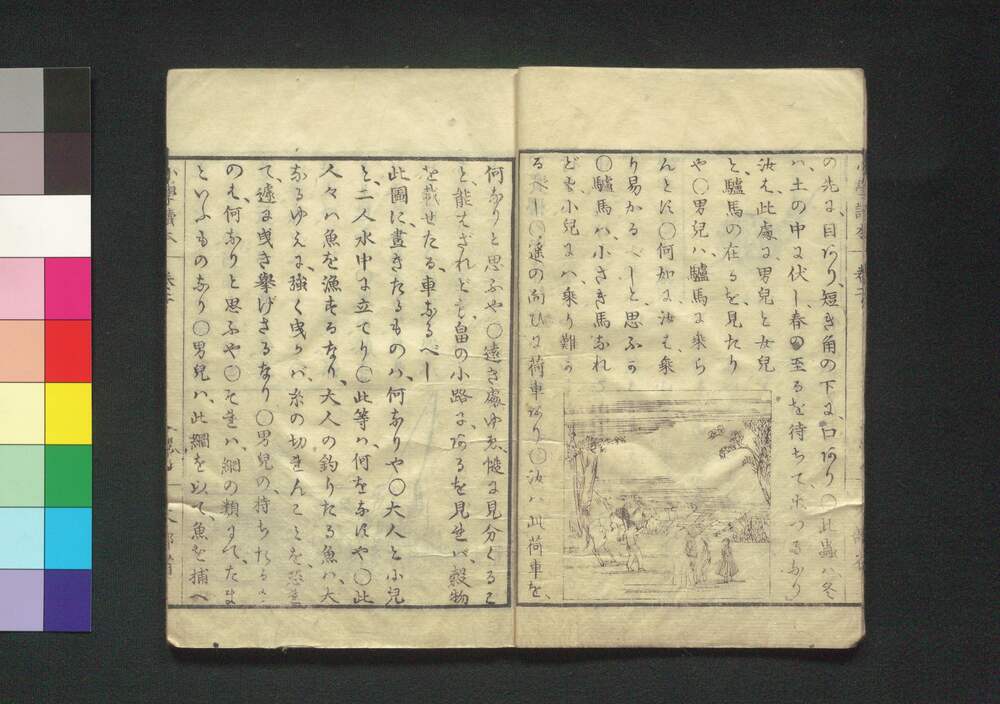 の先に、目あり、短き角の下に、口あり、〇此蟲ハ冬
ハ、土の中に伏し、春の至るを待ちて、出つるなり
汝も、此處に、男兒と女兒
と、驢馬の在るを、見たり
や〇男兒ハ、驢馬に乗ら
んとす〇何如に汝も、乗
り易かるべしと思ふか
〇驢馬ハ、小さき馬なれ
ども、小兒にハ、乗り難か
るべし〇遙の向ひに荷車あり〇汝ハ此荷車を、
何なりと思ふや〇遠き處ゆゑ、慥に見分くるこ
と、能はざれども、畠の小路に、あるを見れバ、穀物
を載せたる、車なるべし
此圖に、畫きたるものハ、何なりや〇大人と小兒
と、二人水中に立てり〇此等ハ、何をなすや〇此
人々ハ、魚を漁するなり、大人の釣りたる魚ハ、大
なるゆゑに、強く曳かバ、糸の切れんことを恐れ
て、遽に曳き擧げざるなり〇男兒の持ちたるも
のも、何なりと思ふや〇それハ、網の類にて、たま
といふものなり〇男兒ハ、此網を以て、魚を捕へ
小學讀本 卷二